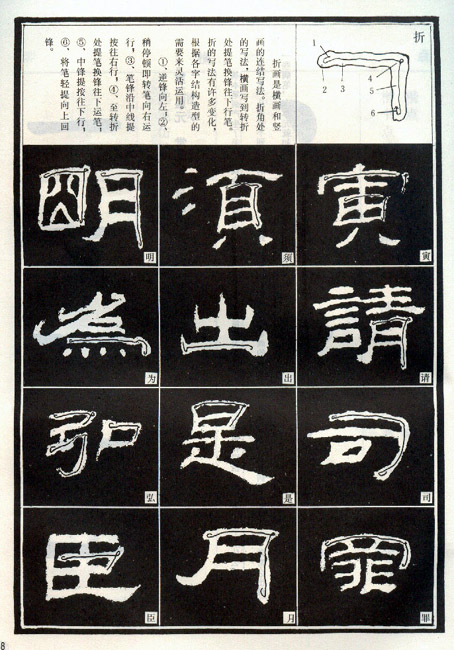 折
1
2
3
4
5
6
折画是横画和竖
画的连结写法。折角处
的写法，横画写到转折
处提笔换锋往下行笔。
折的写法有许多变化，
根据各字结构造型的
需要来灵活运用。
①、逆锋向左；②、
稍停顿即转笔向右运
行；③、笔锋沿中线提
按往右行；④、至转折
处提笔换锋往下运笔；
⑤、中锋提按往下行，
⑥、将笔轻提向上回
锋。
寅
须
明
請
出
為
司
是
弘
罪
月
臣
寅
须
明
请
出
为
司
是
弘
罪
月
臣
8